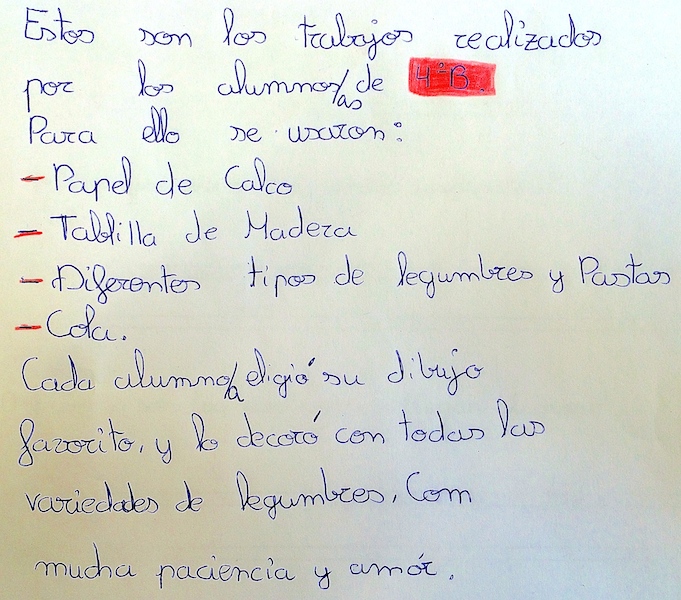 Estos son los trabajos realizados
por los alumnos/as de 4ºB.
Para ello se usaron:
- Papel de Calco
- Tablilla de Madera
- Diferentes tipos de legumbres y Pastas
- Cola.
Cada alumno/a eligió su dibujo
favorito, y lo decoró con todas las
variedades de legumbres. Com
mucha paciencia y amór.